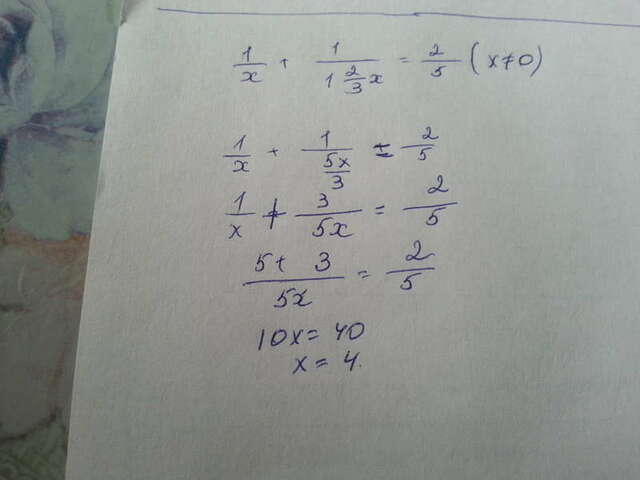 1/x + 1/(1 2/3 x) = 2/5 (x≠0)
1/x + 1/(5x/3) = 2/5
1/x + 3/5x = 2/5
5+ 3/5x = 2/5
10x = 40
x = 4.